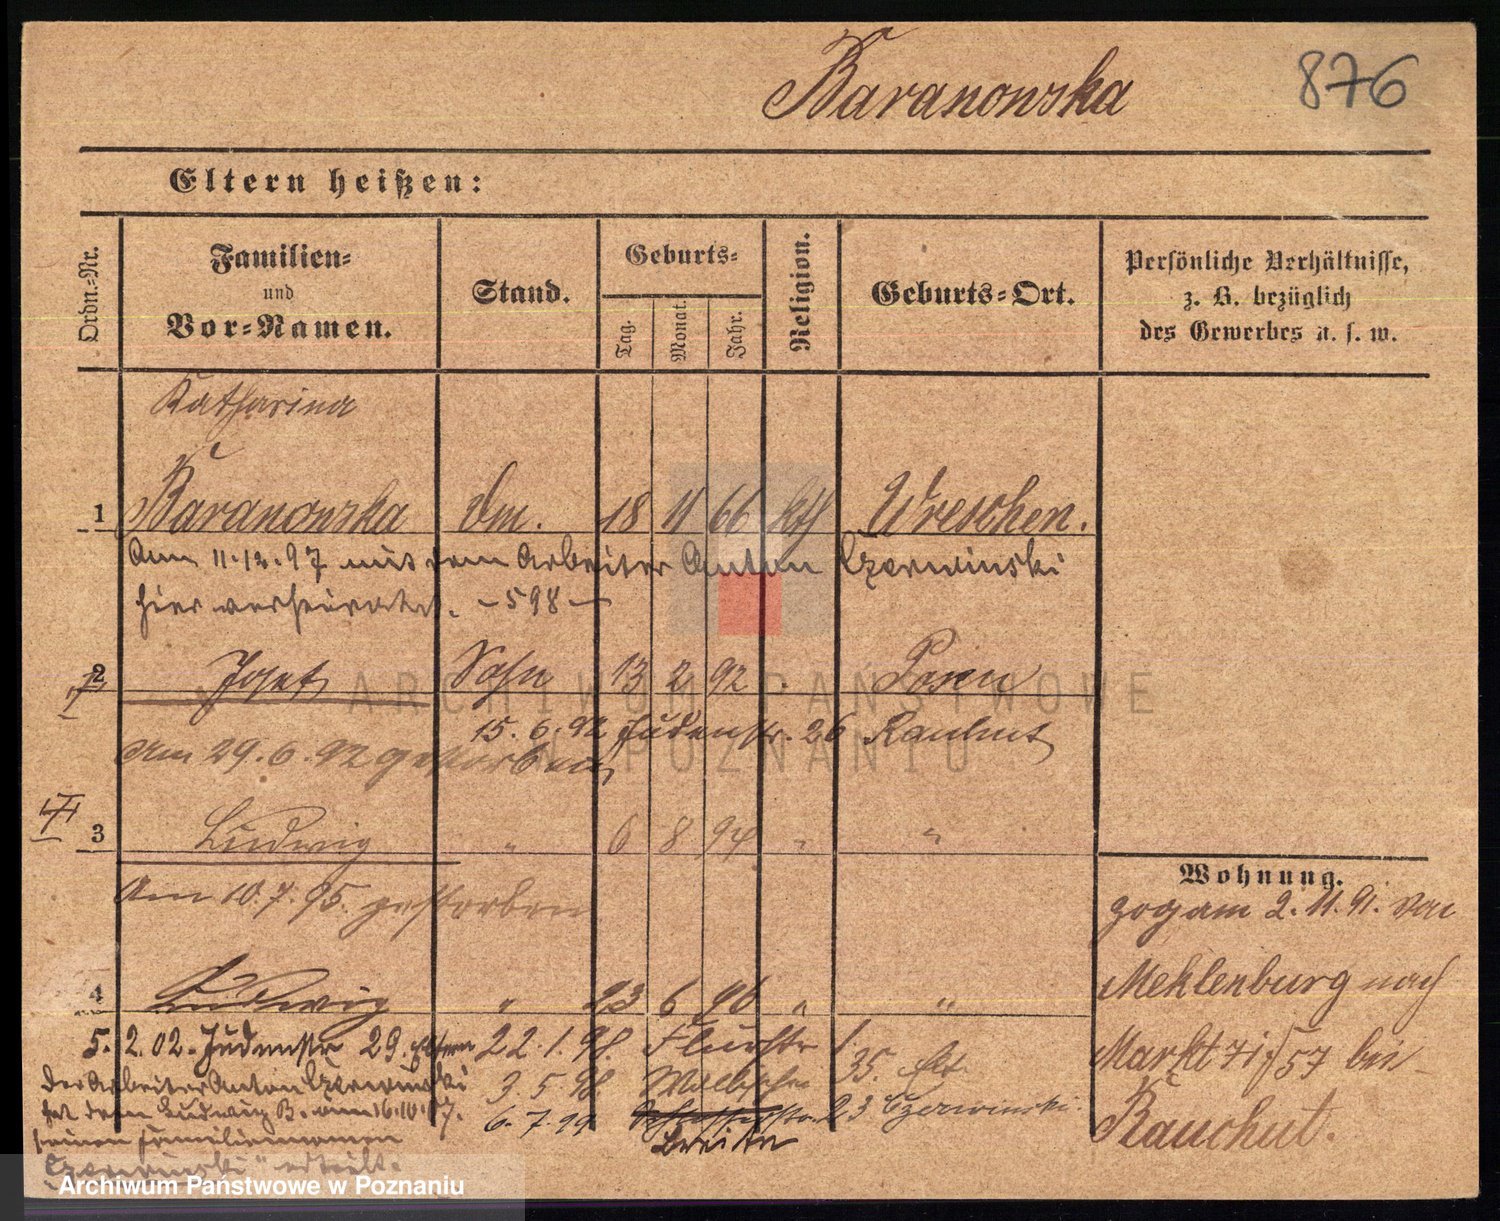 Baranowska
876
Eltern heißen:
Ordn.-Nr.
Familien-
und
Vor-Namen.
Stand.
Geburts-
Tag.
Monat.
Jahr.
Religion.
Geburts-Ort.
Persönliche Verhältnisse,
z. B. bezüglich
des Gewerbes u. s. w.
Katharina
1 Baranowska 18 11 66 kth Wreschen.
Am 11.12.97 mit dem Arbeiter Anton Czerwinski
hier verheiratet. – 598 –
2 Josef Sohn 13 2 92 Posen
15. 6. 92 Judenstr. 26 Rauhut
Am 29. 6. 92 gestorben
3 Ludwig " 6 8 94 " "
Am 10. 7. 95. gestorben
4 Ludwig " 23 6 96 " "
Wohnung.
zog am 2. 11. 91. von
Meklenburg nach
Markt 71/57 bei
Rauchut.
5. 2. 02. Judenstr 29. Eltern
22. 1. 98.
3. 5. 98. 35.
6. 7. 99 23 Czerwinski.
Breite
Der Arbeiter Anton Czerwinski
hat dem Ludwig B. am 16.10.07.
seinen Familiennamen
"Czerwinski" erteilt.
ARCHIWUM PAŃSTWOWE
W POZNANIU
Archiwum Państwowe w Poznaniu